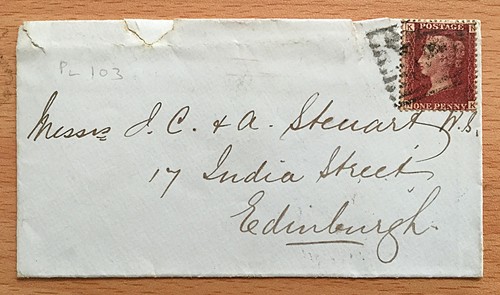 K N
POSTAGE
ONE PENNY
N K
PL 103
Messrs J. C. & A. Steuart W.S.
17 India Street
Edinburgh.